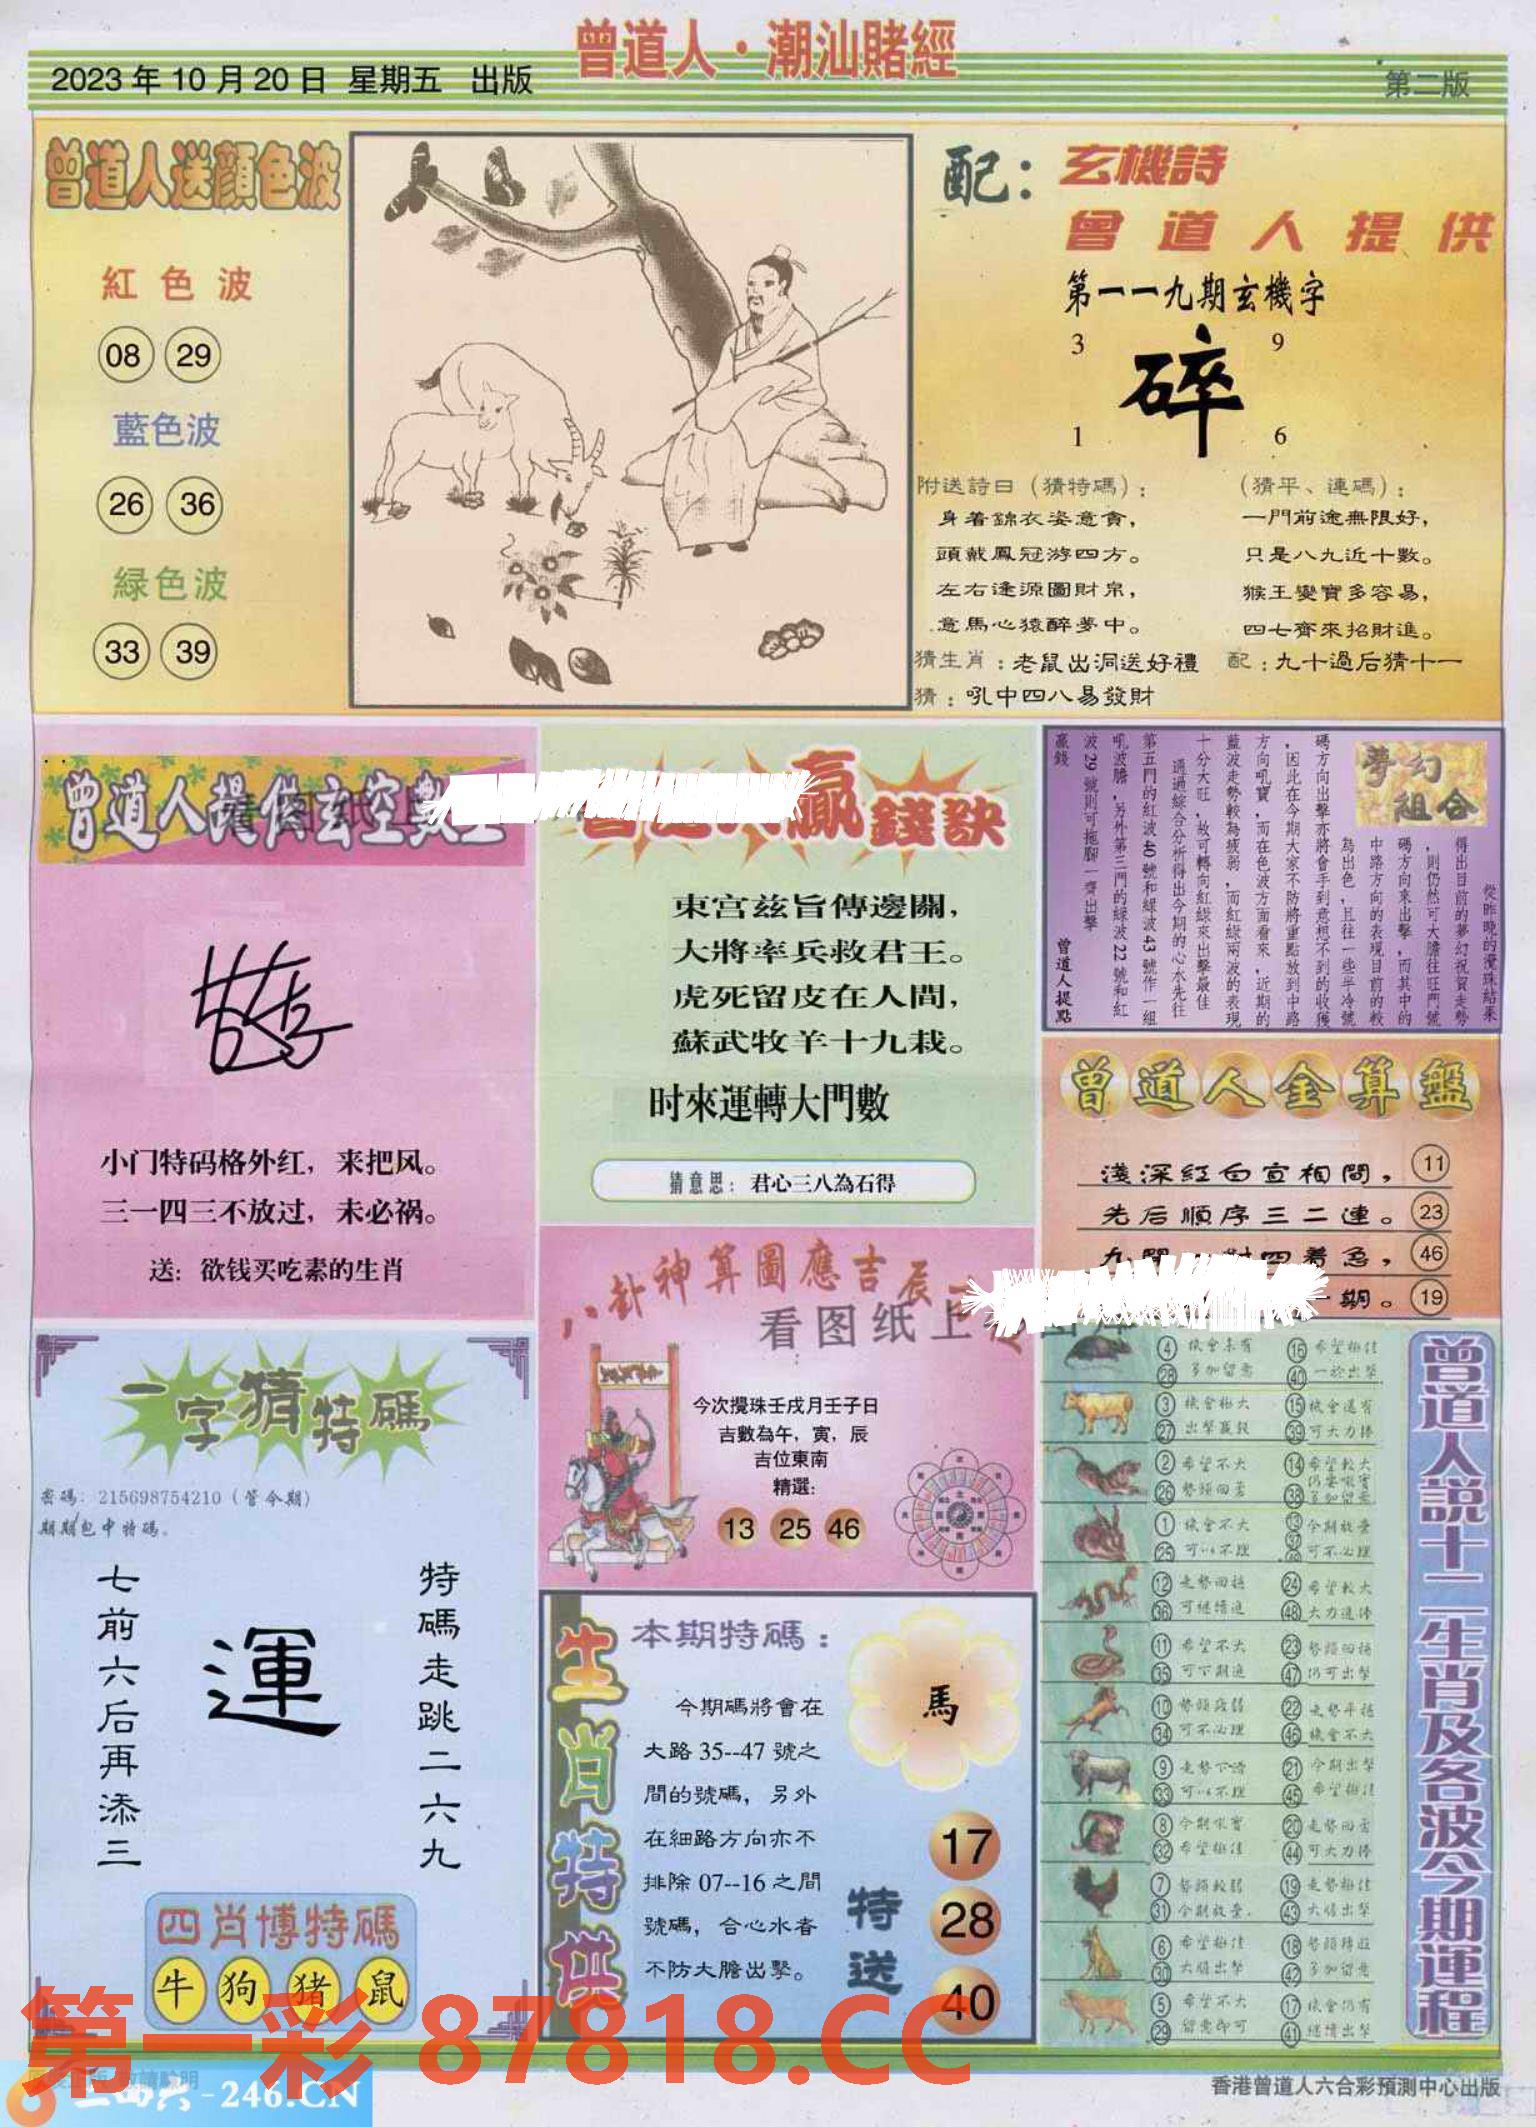 曾道人·潮汕賭經
2023年10月20日 星期五 出版
第二版
曾道人送顔色波
紅色波
08 29
藍色波
26 36
緑色波
33 39
配：玄機詩
曾道人提供
第一一九期玄機字
3 9
碎
1 6
附送詩曰（猜特碼）：
身着錦衣姿意貪，
頭戴鳳冠游四方。
左右逢源圖財帛，
意馬心猿醉夢中。
（猜平、連碼）：
一門前途無限好，
只是八九近十數。
猴王變寶多容易，
四七齊來招財進。
猜生肖：老鼠出洞送好禮
配：九十過后猜十一
猜：吼中四八易發財
曾道人提供玄空數
小门特码格外红，来把风。
三一四三不放过，未必祸。
送：欲钱买吃素的生肖
贏錢訣
東宫兹旨傳邊關，
大將率兵救君王。
虎死留皮在人間，
蘇武牧羊十九栽。
时來運轉大門數
猜意思：君心三八為石得
夢幻組合
從昨晚的攪珠結果
得出目前的夢幻祝賀走勢
，則仍然可大膽往旺門號
碼方向來出擊，而其中的
中路方向的表現目前的較
為出色，且往一些半冷號
碼方向出擊亦將會手到意想不到的收獲
，因此在今期大家不防將重點放到中路
方向吼寶，而在色波方面看來，近期的
藍波走勢較為疲弱，而紅緑兩波的表現
十分大旺，故可轉向紅緑來出擊最佳
通過綜合分析得出今期的心水先往
第五門的紅波40號和緑波43號作一組
吼波膽，另外第三門的緑波22號和紅
波29號則可拖腳一齊出擊
贏錢
曾道人提點
曾道人金算盤
淺深紅白宣相間， 11
先后順序三二連。 23
四着急， 46
期。 19
八卦神算圖應吉辰
看图纸上
今次攪珠壬戌月壬子日
吉數為午，寅，辰
吉位東南
精選：
13 25 46
一字猜特碼
密碼：215698754210（管今期）
期期包中特碼。
七前六后再添三
運
特碼走跳二六九
四肖博特碼
牛 狗 猪 鼠
生肖特供
本期特碼：
今期碼將會在
大路35--47號之
間的號碼，另外
在細路方向亦不
排除07--16之間
號碼，合心水者
不防大膽出擊。
馬
特送
17
28
40
曾道人説十二生肖及各波今期運程
4 機會未有 16 希望極佳
28 多加留意 40 一於出擊
3 機會極大 15 機會還有
27 出擊贏錢 39 可大力捧
2 希望不大 14 希望較大
26 38
1 機會不大 今期放棄
25 可以不理 可不必理
12 走勢回穩 24 希望較大
36 可繼續追 48 大力追捧
11 希望不大 23 勢頭回穩
35 可下期追 47 仍可出擊
10 勢頭疲弱 22 走勢平穩
34 可不必理 46 機會不大
9 走勢下滑 21 今期出擊
33 可以不理 45 希望極佳
8 今期吼寶 20
32 希望極佳 44 可大力捧
7 勢頭較弱 19 走勢極佳
31 今期放棄. 43 大膽出擊
6 希望極佳 18
30 大膽出擊 42 多加留意
5 希望不大 17 機會仍有
29 留意即可 41 繼續出擊
第一彩 87818.CC
二四六-246.CN
香港曾道人六合彩預測中心出版